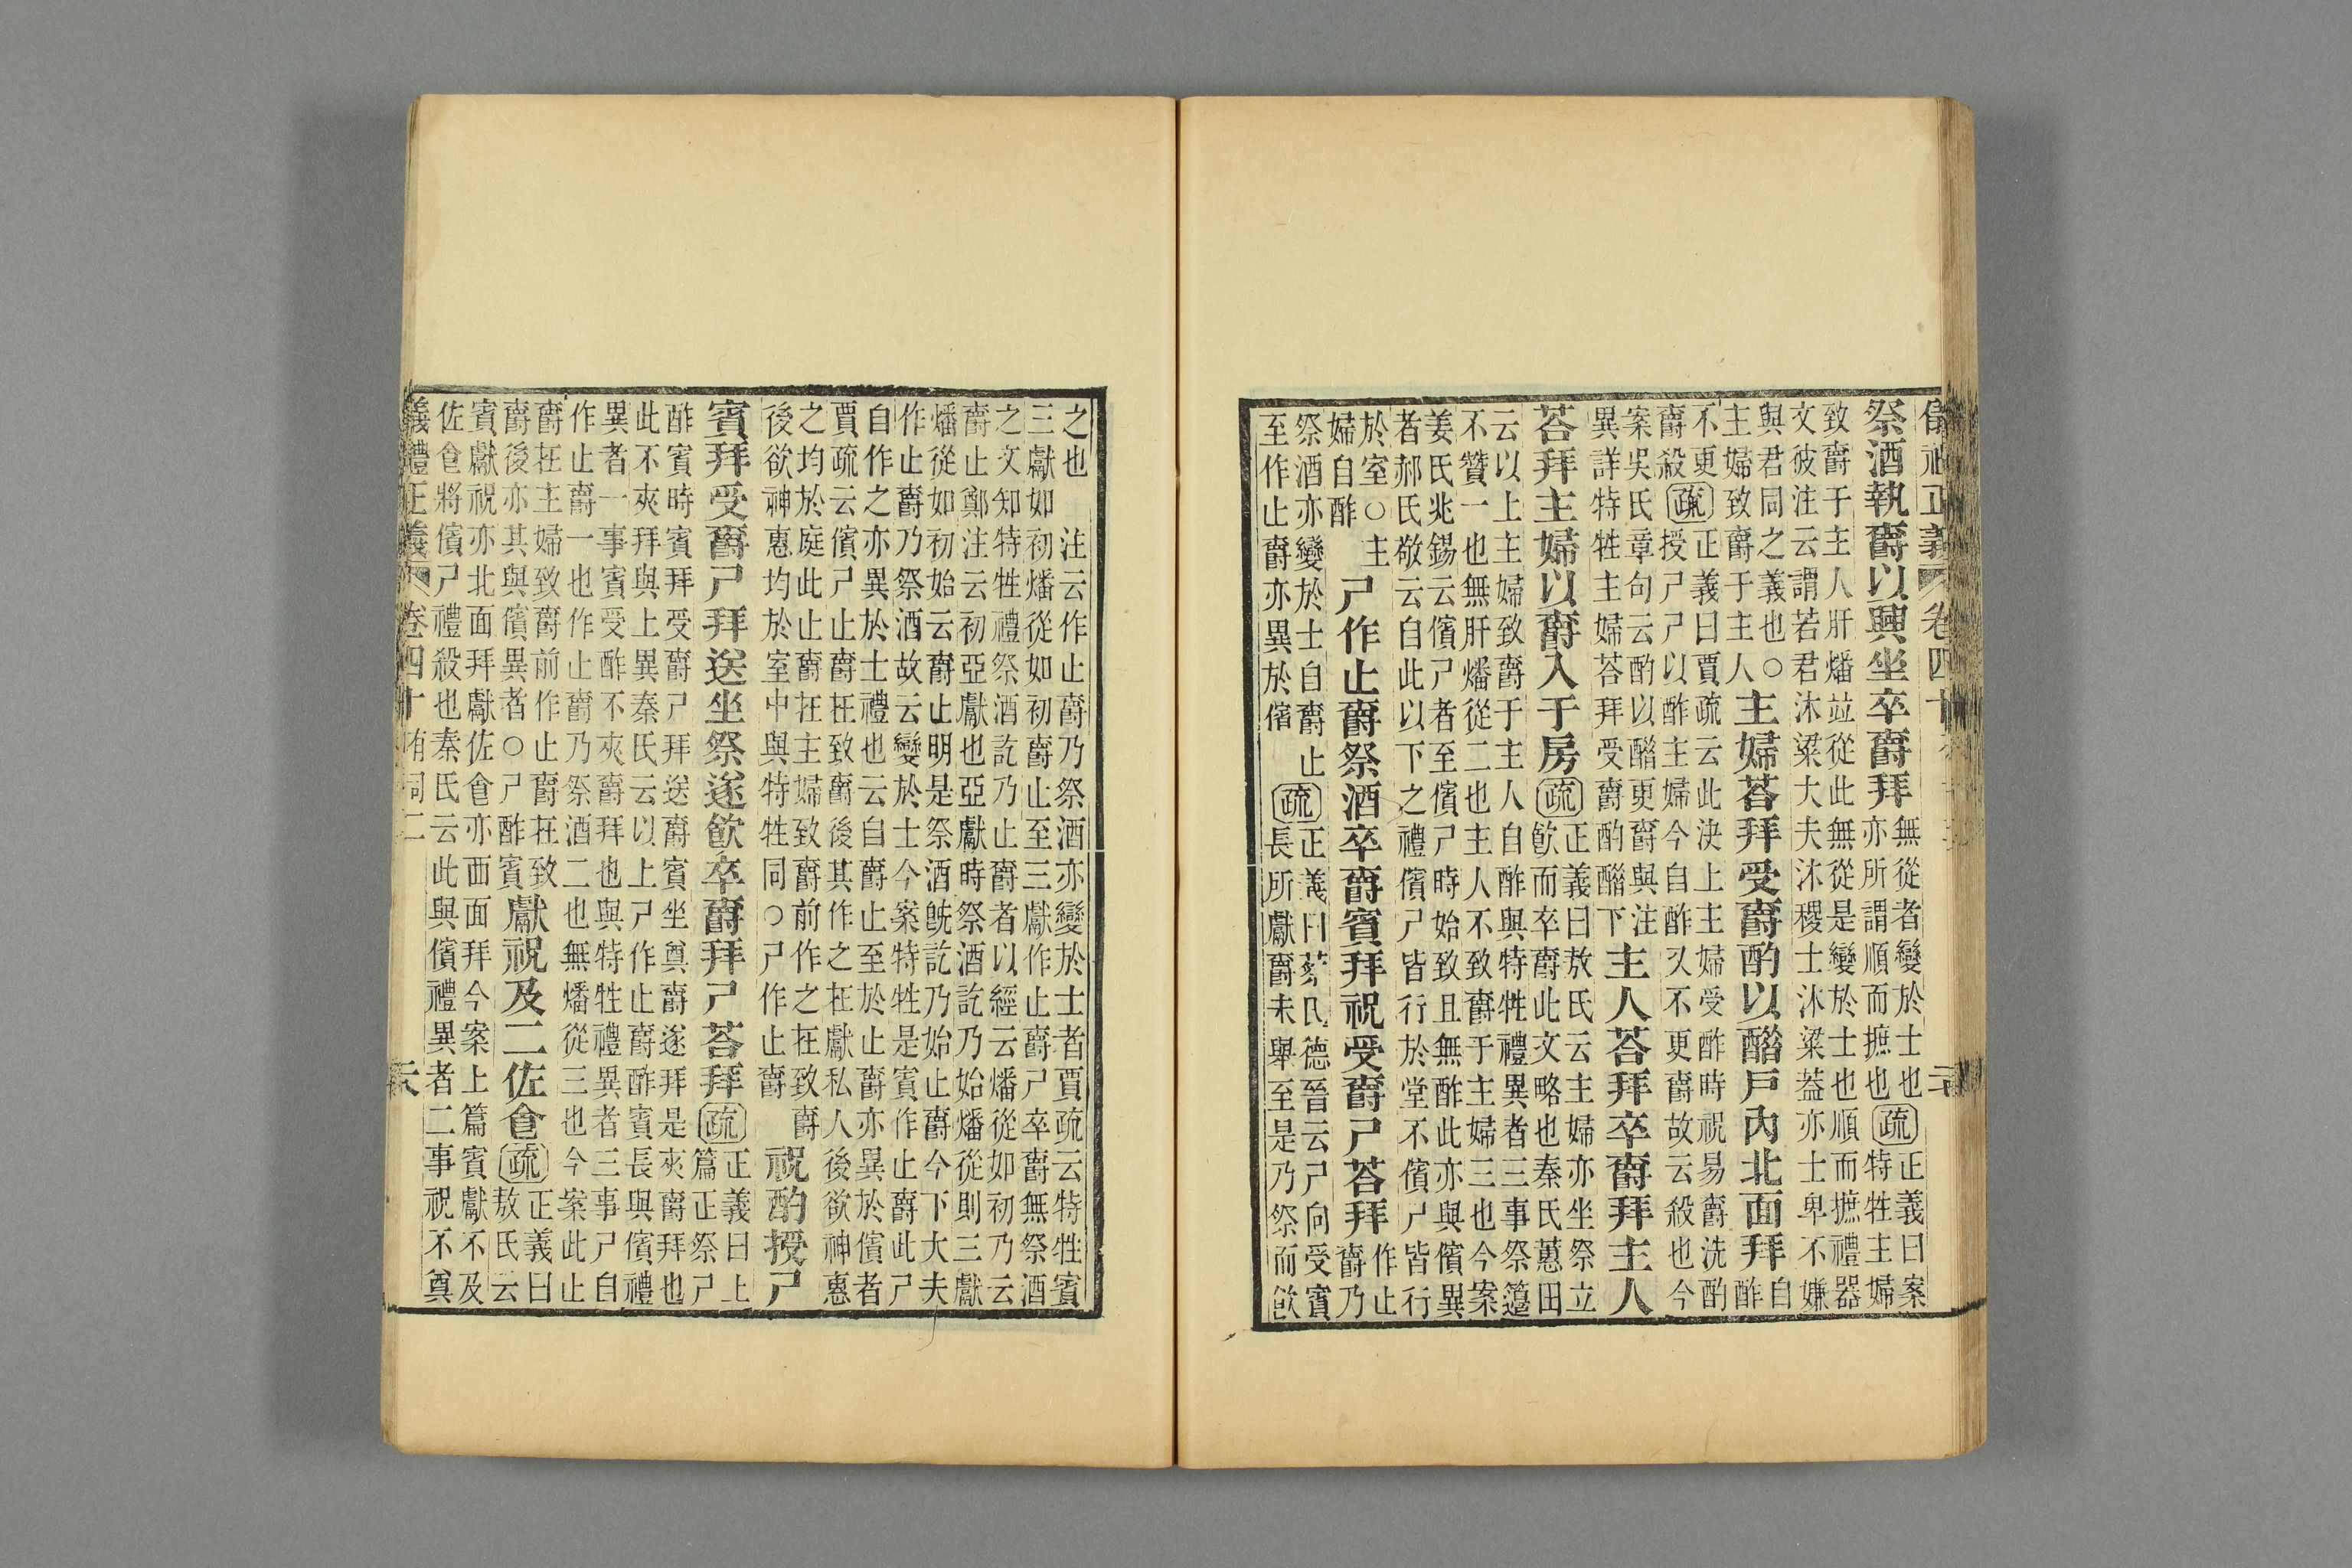 祭酒執爵以興坐卒爵拜
無從者變於士也
亦所謂順而摭也
疏
正義曰案
特牲主婦
致爵于主人肝燔竝從此無從是變於士也順而摭禮器
文彼注云謂若君沐粱大夫沐稷士沐粱葢亦士卑不嫌
與君同之義也○
主婦致爵于主人
主婦荅拜受爵酌以醋戶內北面拜
自
酢
不更
爵殺
疏
正義曰賈疏云此決上主婦受酢時祝易爵洗酌
授尸尸以酢主婦今自酢又不更爵故云殺也今
案吳氏章句云酌以醋更爵與注
異詳特牲主婦荅拜受爵酌醋下
主人荅拜卒爵拜主人
荅拜主婦以爵入于房
疏
正義曰敖氏云主婦亦坐祭立
飮而卒爵此文略也秦氏蕙田
云以上主婦致爵于主人自酢與特牲禮異者三事祭籩
不贊一也無肝燔從二也主人不致爵于主婦三也今案
姜氏兆錫云儐尸者至儐尸時始致且無酢此亦與儐異
者郝氏敬云自此以下之禮儐尸皆行於堂不儐尸皆行
於室○主
婦自酢
尸作止爵祭酒卒爵賓拜祝受爵尸荅拜
作止
爵乃
祭酒亦變於士自爵止
至作止爵亦異於儐
疏
正義曰蔡氏德晉云尸向受賓
長所獻爵未舉至是乃祭而飮
之也　注云作止爵乃祭酒亦變於士者賈疏云特牲賓
三獻如初燔從如初爵止至三獻作止爵尸卒爵無祭酒
之文知特牲禮祭酒訖乃止爵者以經云燔從如初乃云
爵止鄭注云初亞獻也亞獻時祭酒訖乃始燔從則三獻
燔從如初始云爵止明是祭酒旣訖乃始止爵今下大夫
作止爵乃祭酒故云變於士今案特牲是賓作止爵此尸
自作之亦異於士禮也云自爵止至於止爵亦異於儐者
賈疏云儐尸止爵在致爵後其作之在獻私人後欲神惠
之均於庭此止爵在主婦致爵前作之在致爵
後欲神惠均於室中與特牲同○尸作止爵
祝酌授尸
賓拜受爵尸拜送坐祭遂飮卒爵拜尸荅拜
疏
正義曰上
篇正祭尸
酢賓時賓拜受爵尸拜送爵賓坐奠爵遂拜是夾爵拜也
此不夾拜與上異秦氏云以上尸作止爵酢賓長與儐禮
異者一事賓受酢不夾爵拜也與特牲禮異者三事尸自
作止爵一也作止爵乃祭酒二也無燔從三也今案此止
爵在主婦致爵前作止爵在致
爵後亦其與儐異者○尸酢賓
獻祝及二佐食
疏
正義曰
敖氏云
賓獻祝亦北面拜獻佐食亦面面拜今案上篇賓獻不及
佐食將儐尸禮殺也秦氏云此與儐禮異者二事祝不奠
儀禮正義　卷四十　有司二